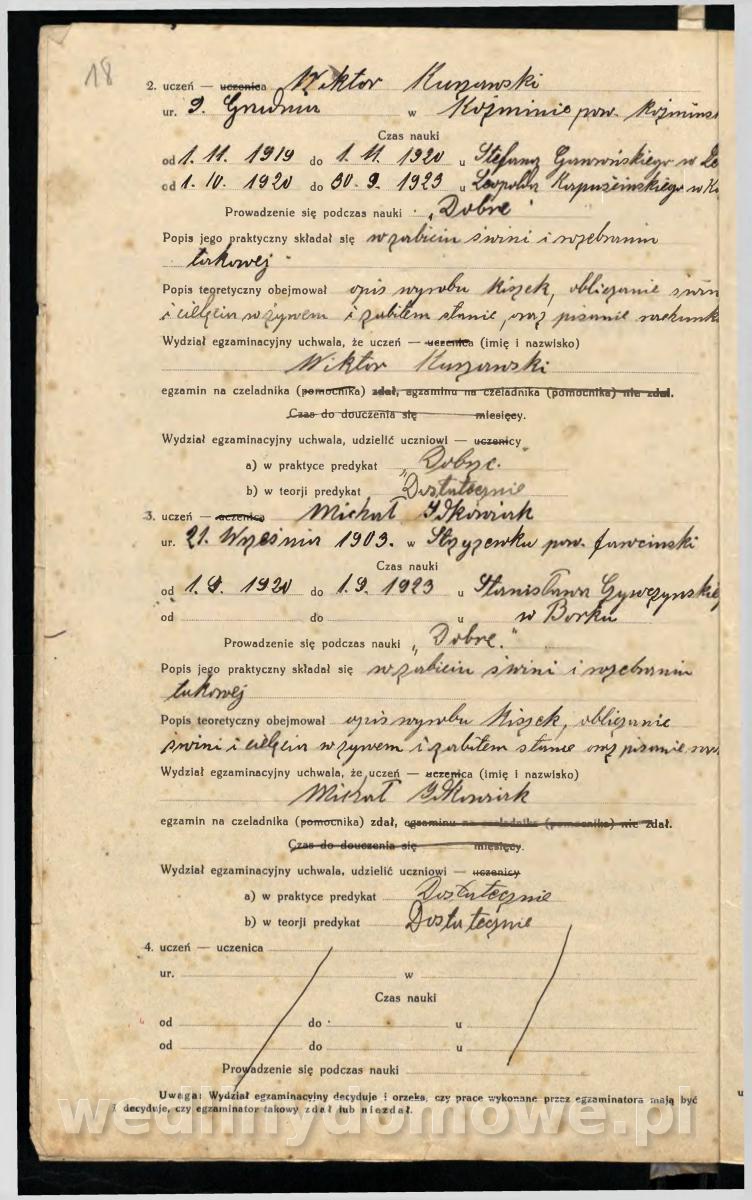 18
2. uczeń — uczenica Wiktor Kurzawski
ur. 9. Grudnia w Koźminie pow. Koźmińsk
Czas nauki
od 1. 11. 1919 do 1. 11. 1920 u Stefana w
od 1. 10. 1920 do 30. 9. 1923 u Leopolda w
Prowadzenie się podczas nauki „Dobre"
Popis jego praktyczny składał się w zabiciu świni i rozebraniu
takowej
Popis teoretyczny obejmował opis wyrobu kiszek, obliczanie świn
i cielęcia w żywem i zabitem stanie, oraz pisanie rachunk
Wydział egzaminacyjny uchwala, że uczeń — uczenica (imię i nazwisko)
Wiktor Kurzawski
egzamin na czeladnika (pomocnika) zdał, egzaminu na czeladnika (pomocnika) nie zdał.
Czas do douczenia się miesięcy.
Wydział egzaminacyjny uchwala, udzielić uczniowi — uczenicy
a) w praktyce predykat „Dobrze."
b) w teorji predykat „Dostatecznie
3. uczeń — uczenica Michał Idkowiak
ur. 21. Września 1903. w Strzyżewku pow.
Czas nauki
od 1. 9. 1920 do 1. 9. 1923 u Stanisława
od do u w Borku
Prowadzenie się podczas nauki „Dobre."
Popis jego praktyczny składał się w zabiciu świni i rozebraniu
takowej
Popis teoretyczny obejmował opis wyrobu kiszek, obliczanie
świni i cielęcia w żywem i zabitem stanie oraz pisanie
Wydział egzaminacyjny uchwala, że uczeń — uczenica (imię i nazwisko)
Michał Idkowiak
egzamin na czeladnika (pomocnika) zdał, egzaminu na czeladnika (pomocnika) nie zdał.
Czas do douczenia się miesięcy.
Wydział egzaminacyjny uchwala, udzielić uczniowi — uczenicy
a) w praktyce predykat Dostatecznie
b) w teorji predykat Dostatecznie
4. uczeń — uczenica
ur. w
Czas nauki
od do u
od do u
Prowadzenie się podczas nauki
Uwaga: Wydział egzaminacyjny decyduje i orzeka, czy prace wykonane przez egzaminatora mają być
i decyduje, czy egzaminator takowy zdał lub niezdał.
wedlinydomowe.pl